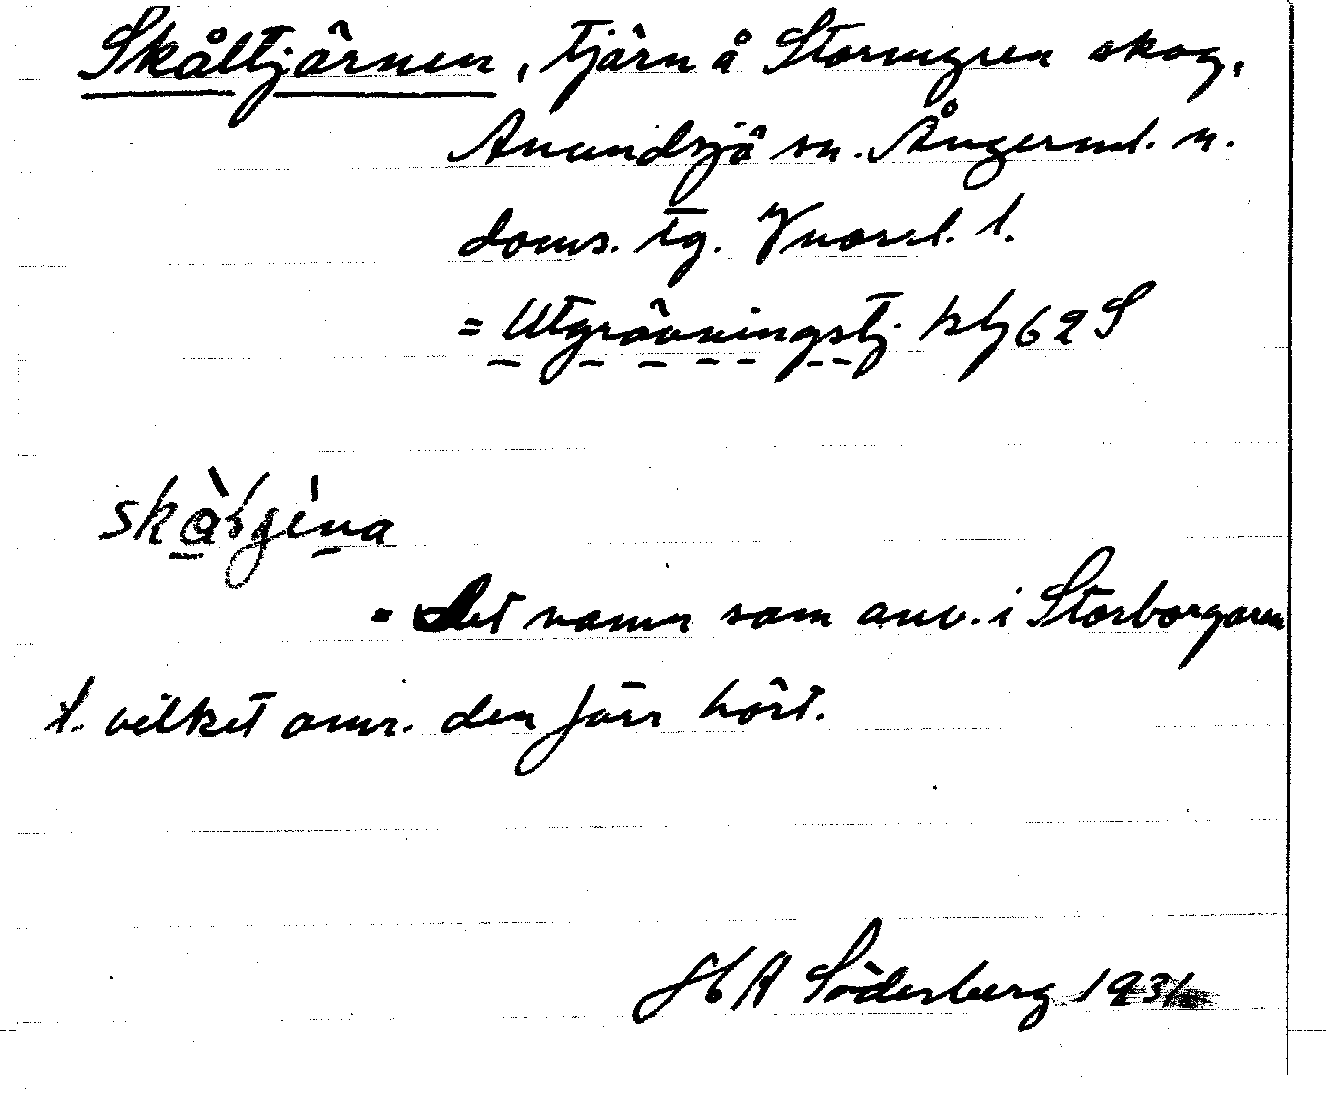 Skåltjärnen, tjärn å Stormyren skog,
Anundsjö sn. Ångerml. n.
doms. tg. Vnorrl. l.
= Utgrävningstj. kbl 62 S
= Det namn som anv. i Storborgaren
t. vilket omr. den förr hört.
H A Söderberg 1931